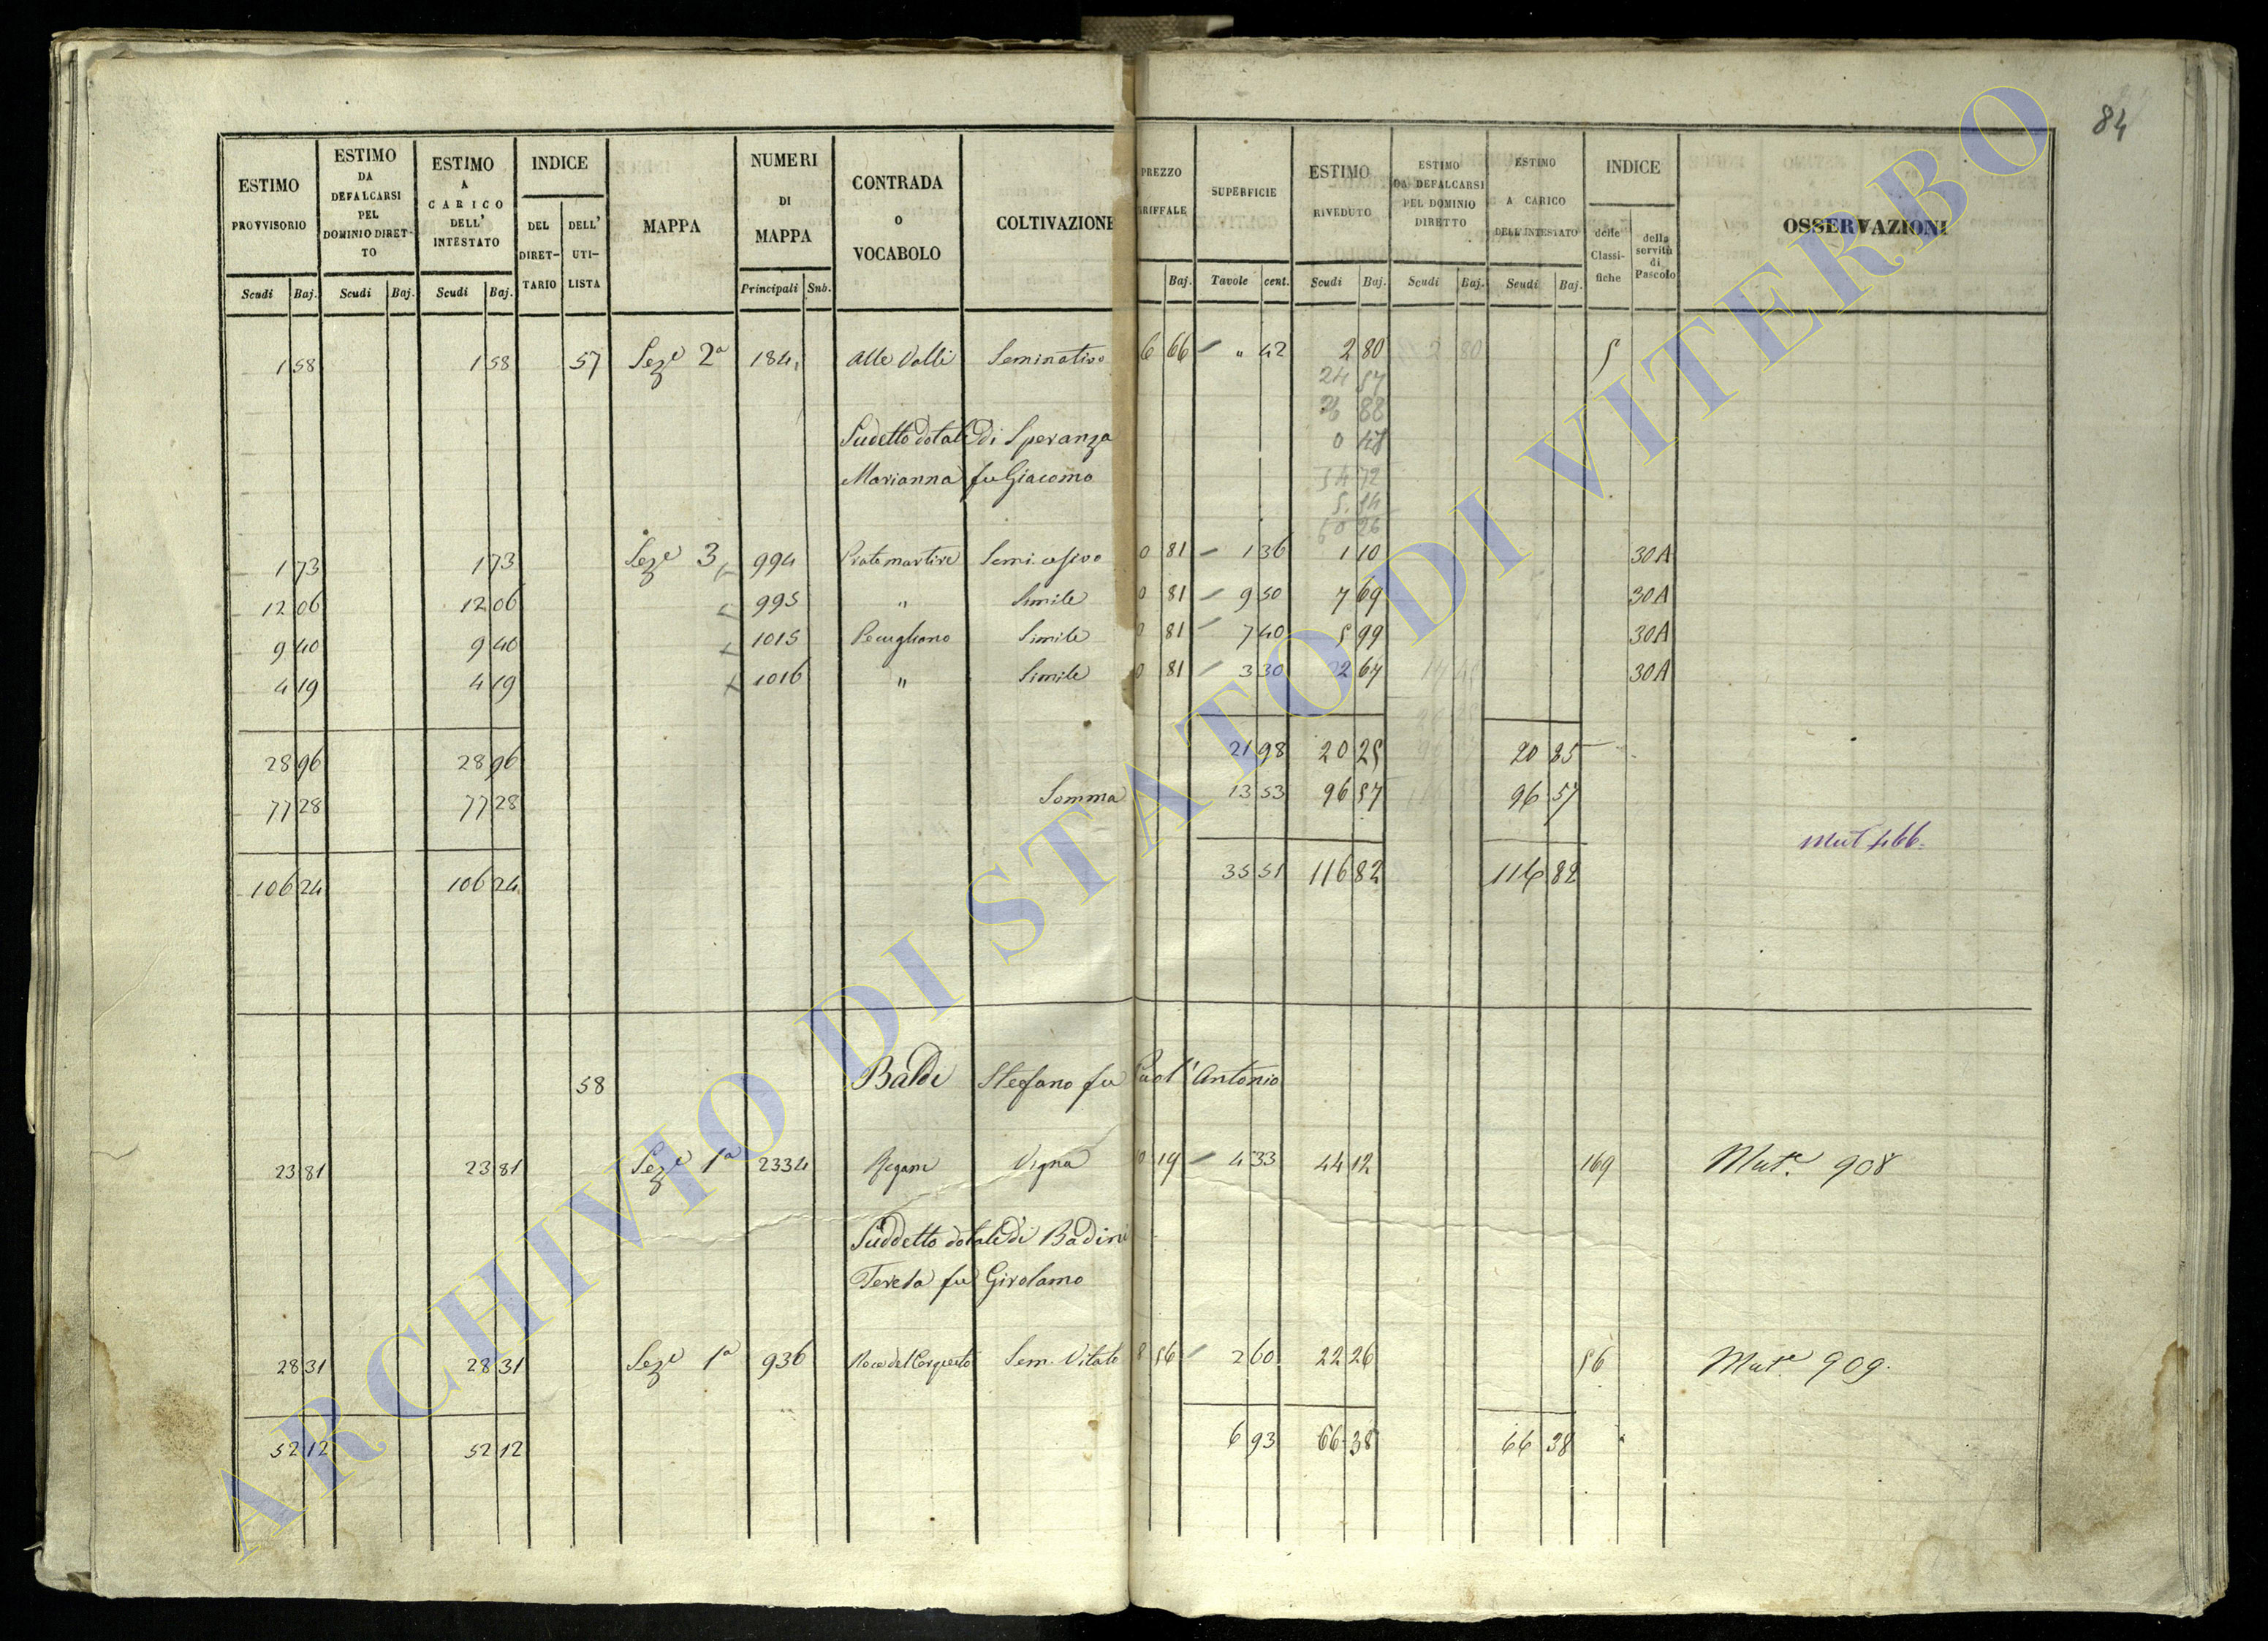 84
ESTIMO PROVVISORIO Scudi Baj.
ESTIMO DA DEFALCARSI PEL DOMINIO DIRETTO Scudi Baj.
ESTIMO A CARICO DELL' INTESTATO Scudi Baj.
INDICE DEL DIRETTARIO DELL' UTILISTA
MAPPA
NUMERI DI MAPPA Principali Sub.
CONTRADA O VOCABOLO
COLTIVAZIONE
PREZZO Baj.
SUPERFICIE Tavole cent.
ESTIMO RIVEDUTO Scudi Baj.
ESTIMO DA DEFALCARSI PEL DOMINIO DIRETTO Scudi Baj.
ESTIMO A CARICO DELL'INTESTATO Scudi Baj.
INDICE delle Classifiche della servitù di Pascolo
OSSERVAZIONI
1 58 1 58 57 Seze 2a 184 Alle Valli Seminativo 6 66 " 42 2 80 2 80 5
24 57
88
0 47
Sudetto dotale di Speranza
Marianna fu Giacomo
54 72
5.14
60 26
1 73 1 73 Seze 3 994 Pratomartire 0 81 1 36 1 10 30A
12 06 12 06 995 " Simile 0 81 9 50 7 69 30A
9 40 9 40 1015 Simile 0 81 7 40 5 99 30A
4 19 4 19 1016 " Simile 0 81 3 30 2 67 30A
28 96 28 96 21 98 20 25 20 85
77 28 77 28 Somma 13 53 96 57 96 57
Mut 466.
106 24 106 24 35 51 116 82 116 82
58 Balde Stefano fu Paol' Antonio
23 81 23 81 Seze 1a 2334 Vigna 10 19 4 33 44 12 169 Mute. 908
Suddetto dotale di Badini
Teresa fu Girolamo
28 31 28 31 Seze 1a 936 Sem. Vitato 8 56 2 60 22 26 56 Mute. 909.
52 12 52 12 6 93 66 38 66 38
ARCHIVIO DI STATO DI VITERBO